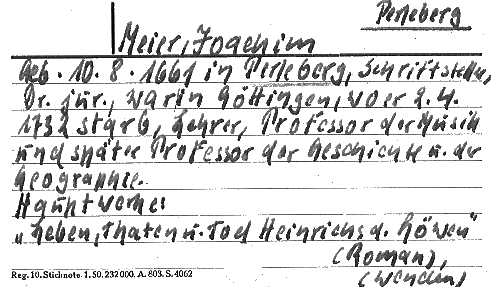 Perleberg
Meier, Joachim
Geb. 10. 8. 1661 in Perleberg, Schriftsteller,
Dr. jur., war in Göttingen, wo er 2. 4.
1732 starb, Lehrer, Professor der Musik
und später Professor der Geschichte u. der
Geographie.
Hauptwerke:
"Leben, Thaten u. Tod Heinrichs d. Löwen"
(Roman),
(Wenden)
Reg. 10. Stichnote. 1. 50. 232 000. A. 803. S. 4062